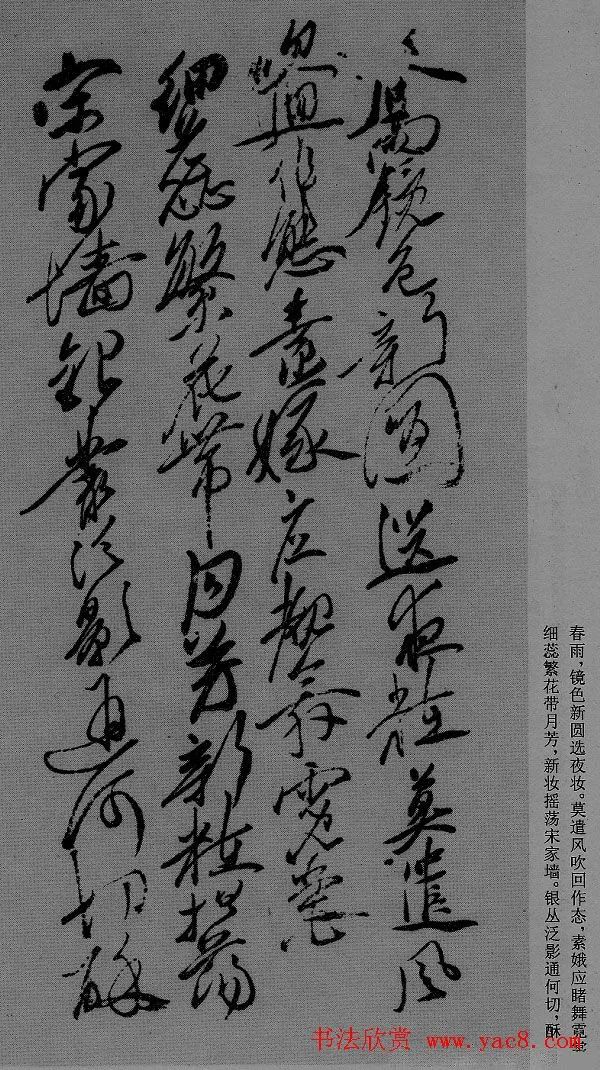 鏡色新圓選夜粧莫遣風
吹迴作態素娥应覩舞霓裳
細蕊繁花帶月芳新粧摇荡
宋家墙銀叢泛影通何切酥
春雨，镜色新圆选夜妆。莫遣风吹回作态，素娥应睹舞霓裳
细蕊繁花带月芳，新妆摇荡宋家墙。银丛泛影通何切，酥
书法欣赏 www.yac8.com